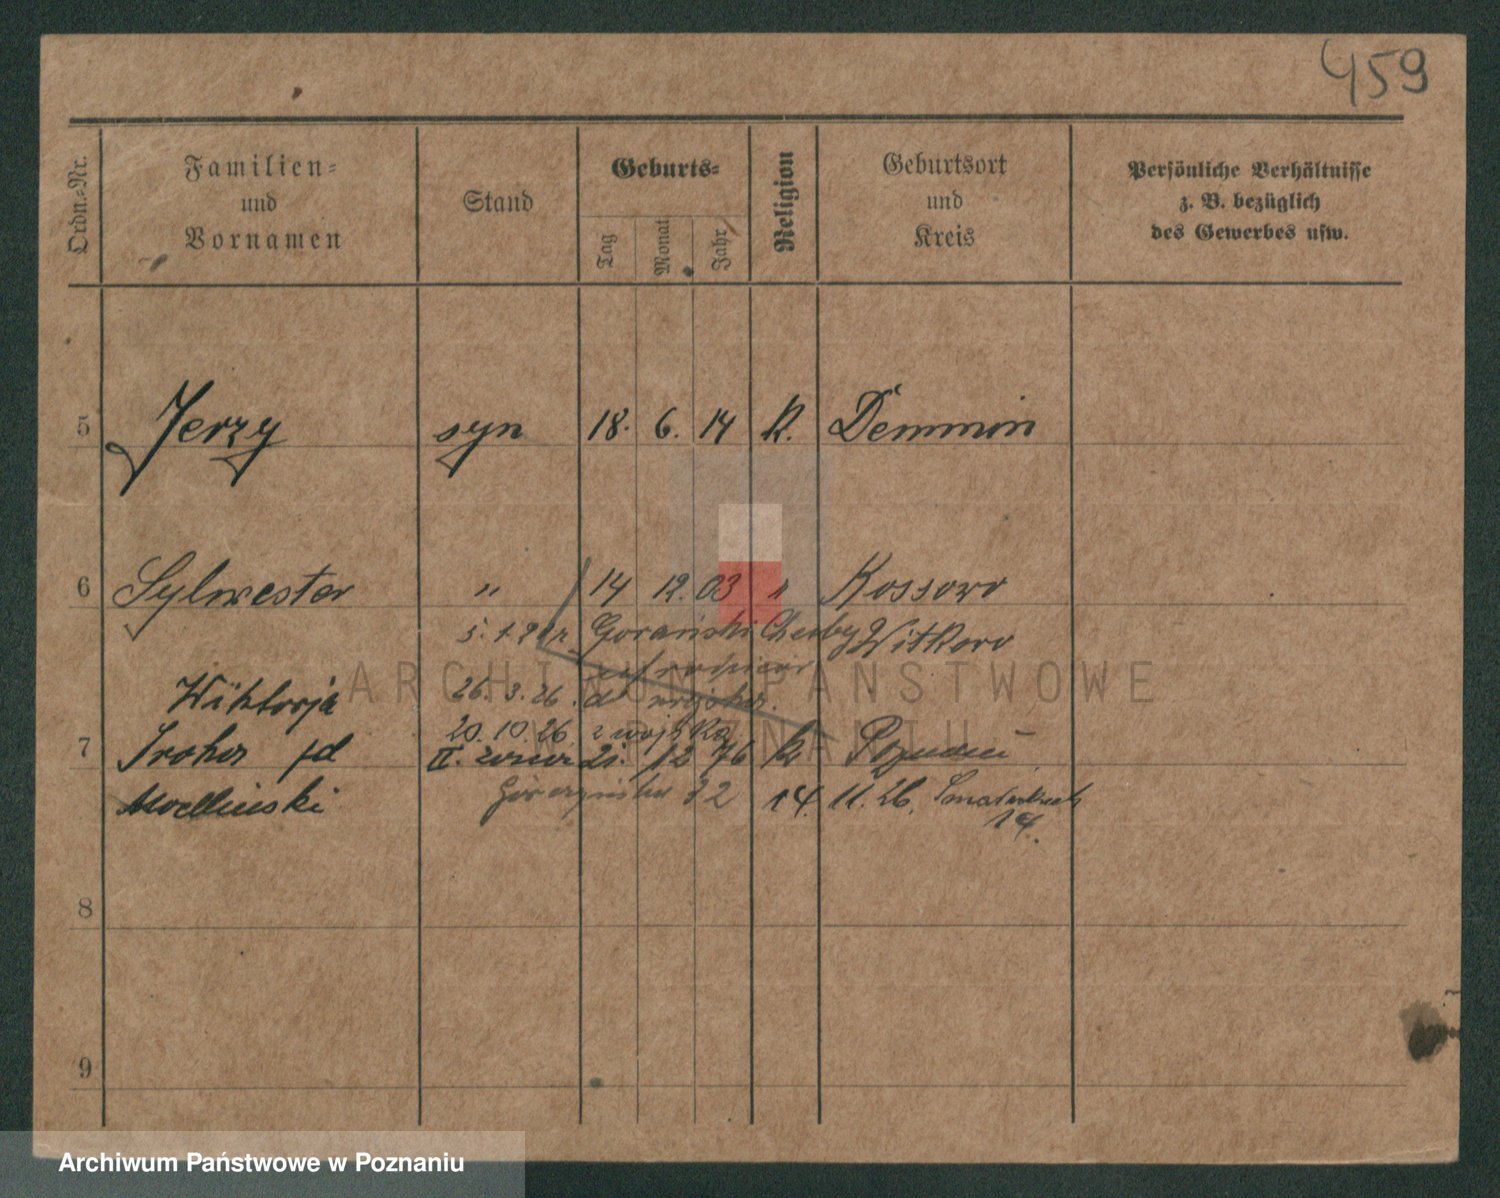 459
Ordn.-Nr.
Familien-
und
Vornamen
Stand
Geburts-
Tag
Monat
Jahr
Religion
Geburtsort
und
Kreis
Persönliche Verhältnisse
z. B. bezüglich
des Gewerbes usw.
5 Jerzy syn 18. 6. 14 k. Demmin
6 Sylwester " 14 12. 03 " Kossowo
5. 1. Witkowo
ARCHIWUM PAŃSTWOWE
W POZNANIU
Wiktorja 26. 3. 26. do wojska.
20. 10. 26 z wojska
7 id II. 21. 12 76 k
32 14. 11. 26.
14.
8
9
Archiwum Państwowe w Poznaniu